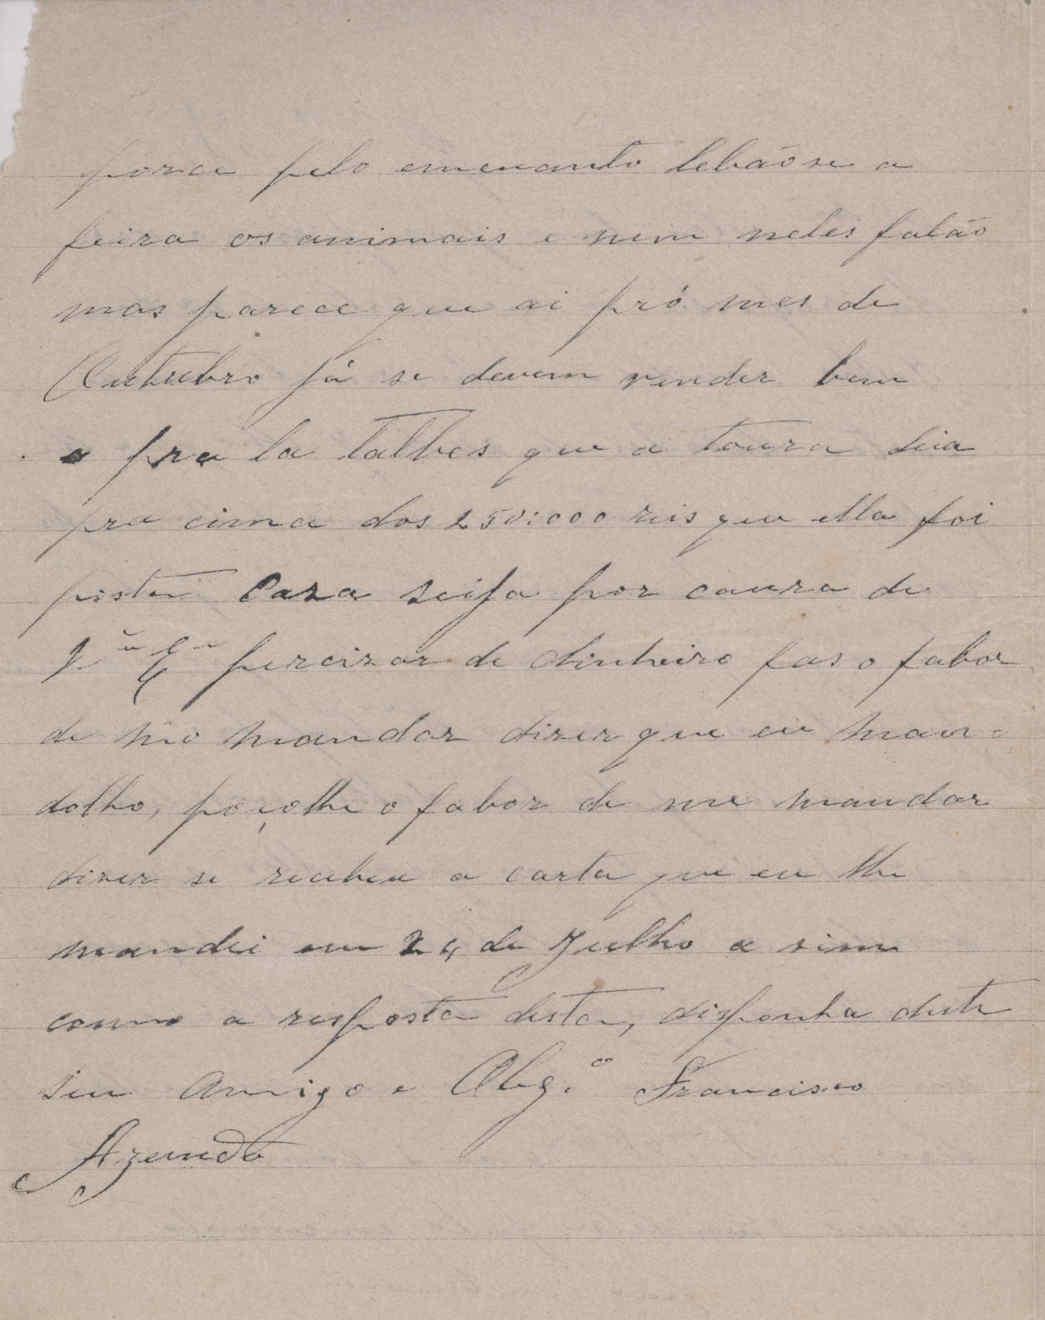 porce pelo emcuanto lebãose a
feira os animais e nem neles falão
mas parece que ai pró mes de
Outubro já se devem vender bem
e pra la talbes que a toura deia
pra cima dos 250:000 reis que ella foi
posta Caza seija por cauza de
V.ª Ex.ª percizar de dinheiro fas o fabor
de mo mandar dizer que eu man-
dolho, peçolhe o fabor de me mandar
dizer se recebeu a carta que eu lhe
mandei em 24 de Julho a sim
como a resposta desta, disponha deste
seu Amigo e Obg.º Francisco
Azevedo